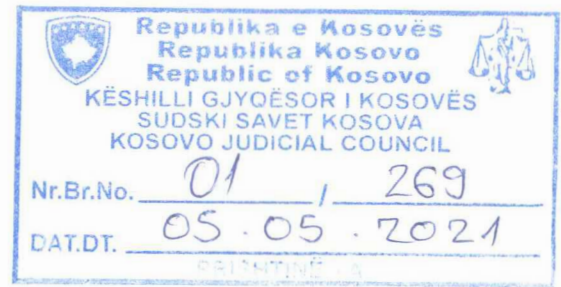 Republika e Kosovës
Republika Kosovo
Republic of Kosovo
KËSHILLI GJYQËSOR I KOSOVËS
SUDSKI SAVET KOSOVA
KOSOVO JUDICIAL COUNCIL
Nr.Br.No. 01 / 269
DAT.DT. 05.05.2021